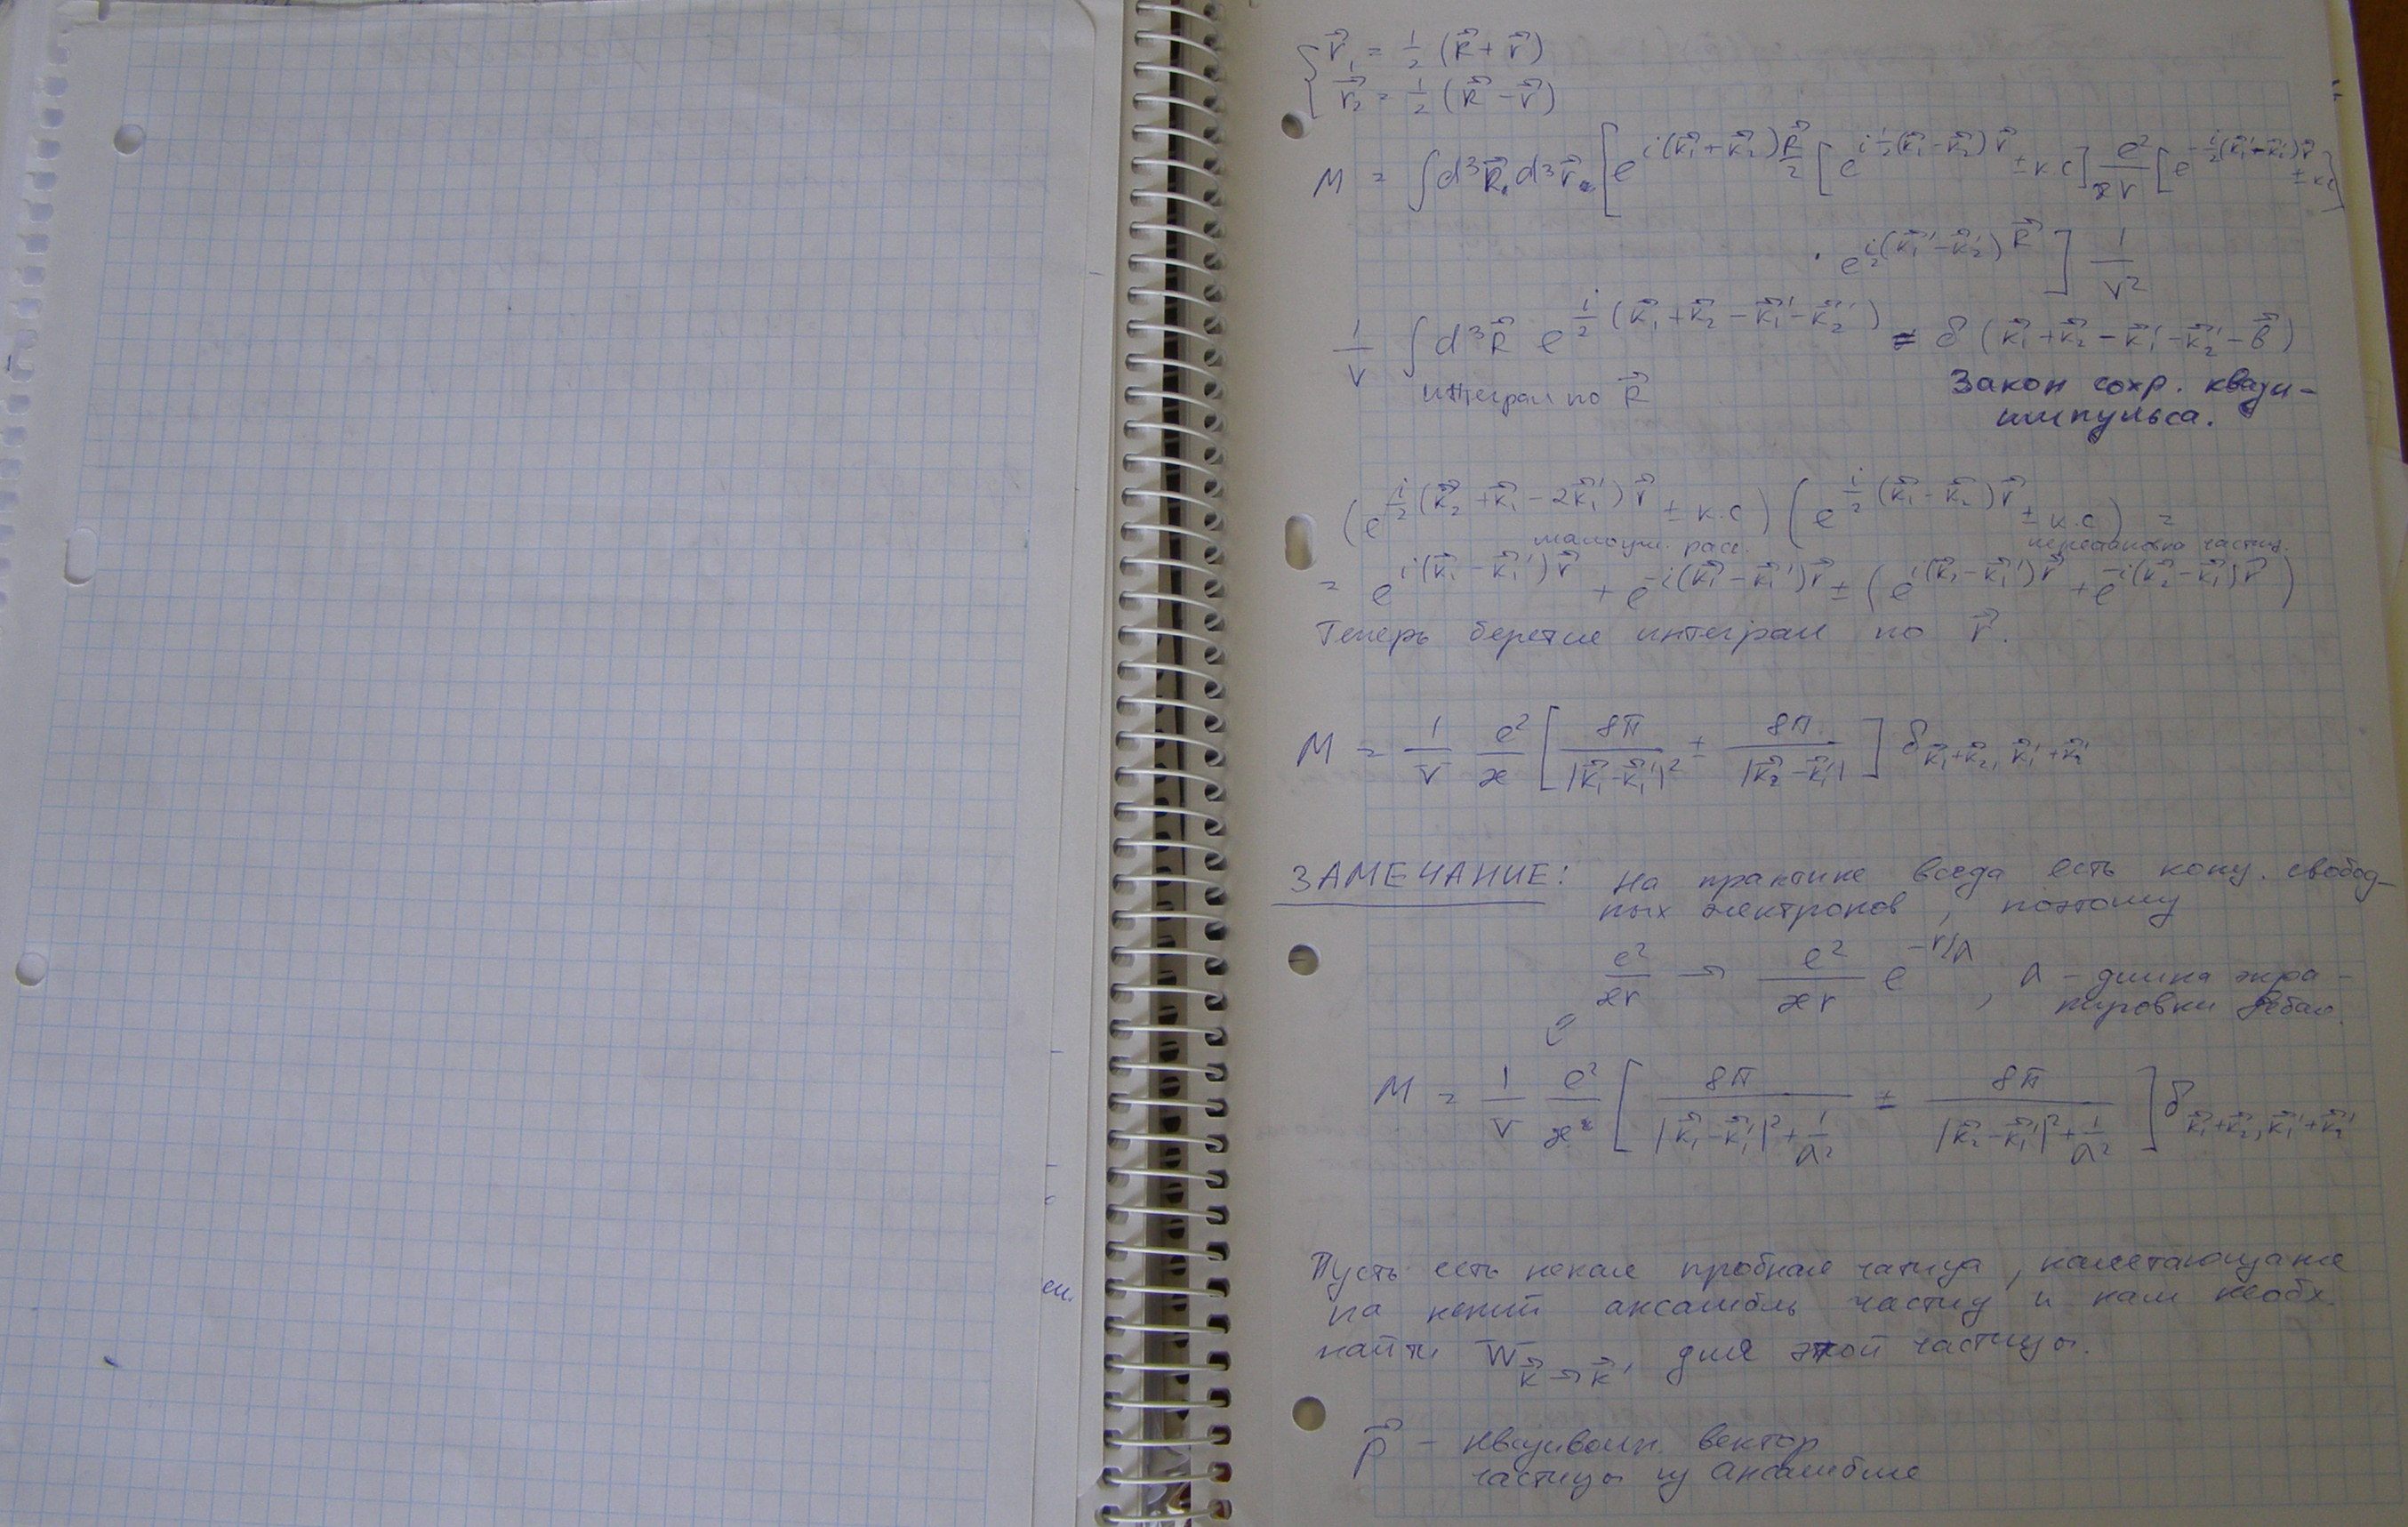 r⃗₁ = ½ (R⃗ + r⃗)
r⃗₂ = ½ (R⃗ − r⃗)
M = ∫d³R⃗ d³r⃗ [e^{i(k⃗₁+k⃗₂)R⃗/2} [e^{i½(k⃗₁−k⃗₂)r⃗} ± к.с] e²/ær [e^{−i/2(k⃗₁'−k⃗₂')r⃗} ± к.с]
· e^{i/2(k⃗₁'−k⃗₂')R⃗}] 1/V²
1/V ∫d³R⃗ e^{i/2(k⃗₁+k⃗₂−k⃗₁'−k⃗₂')} = δ(k⃗₁+k⃗₂−k⃗₁'−k⃗₂'−b⃗)
интеграл по R⃗ Закон сохр. квази-
импульса.
(e^{i/2(k⃗₂+k⃗₁−2k⃗₁')r⃗} ± к.с) (e^{i/2(k⃗₁−k⃗₂)r⃗} ± к.с) =
малоугл. расс. перестановка частиц.
= e^{i(k⃗₁−k⃗₁')r⃗} + e^{−i(k⃗₁−k⃗₁')r⃗} ± (e^{i(k⃗₂−k⃗₁')r⃗} + e^{−i(k⃗₂−k⃗₁')r⃗})
Теперь берется интеграл по r⃗.
M = 1/V e²/æ [8π/|k⃗₁−k⃗₁'|² ± 8π/|k⃗₂−k⃗₁'|] δ_{k⃗₁+k⃗₂, k⃗₁'+k⃗₂'}
ЗАМЕЧАНИЕ: На практике всегда есть конц. свобод-
ных электронов, поэтому
e²/ær → e²/ær e^{−r/Λ}, Λ – длина экра-
нировки Дебая.
M = 1/V e²/æ [8π/(|k⃗₁−k⃗₁'|²+1/Λ²) ± 8π/(|k⃗₂−k⃗₁'|²+1/Λ²)] δ_{k⃗₁+k⃗₂, k⃗₁'+k⃗₂'}
Пусть есть некая пробная частица, налетающая
на некий ансамбль частиц и нам необх.
найти W_{k⃗→k⃗'} для этой частицы.
p⃗ – квазиволн. вектор
частицы из ансамбля
ем.